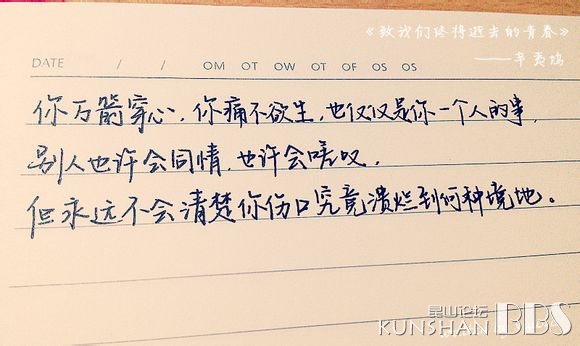 《致我们终将逝去的青春》
——辛夷坞
DATE / / OM OT OW OT OF OS OS
你万箭穿心，你痛不欲生，也仅仅是你一个人的事，
别人也许会同情，也许会嗟叹，
但永远不会清楚你伤口究竟溃烂到何种境地。
昆山论坛
KUNSHAN BBS